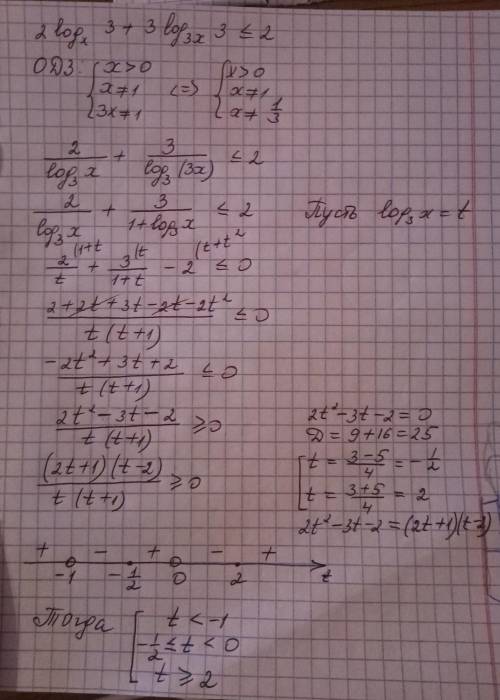 2 logₓ 3 + 3 log₃ₓ 3 ≤ 2
ОДЗ: { x > 0 <=> { x > 0
x ≠ 1 x ≠ 1
3x ≠ 1 x ≠ 1/3
2/log₃ x + 3/log₃ (3x) ≤ 2
2/log₃ x + 3/(1 + log₃ x) ≤ 2 Пусть log₃ x = t
2/t (1+t + 3/(1+t) (t − 2 (t+t² ≤ 0
(2 + 2t + 3t − 2t − 2t²)/(t (t+1)) ≤ 0
(−2t² + 3t + 2)/(t (t+1)) ≤ 0
(2t² − 3t − 2)/(t (t+1)) ≥ 0 2t² − 3t − 2 = 0
Д = 9 + 16 = 25
((2t+1)(t−2))/(t (t+1)) ≥ 0 [ t = (3−5)/4 = −1/2
t = (3+5)/4 = 2
2t² − 3t − 2 = (2t+1)(t−2)
+ − + − +
−1 −1/2 0 2 t
Тогда [ t < −1
−1/2 ≤ t < 0
t ≥ 2